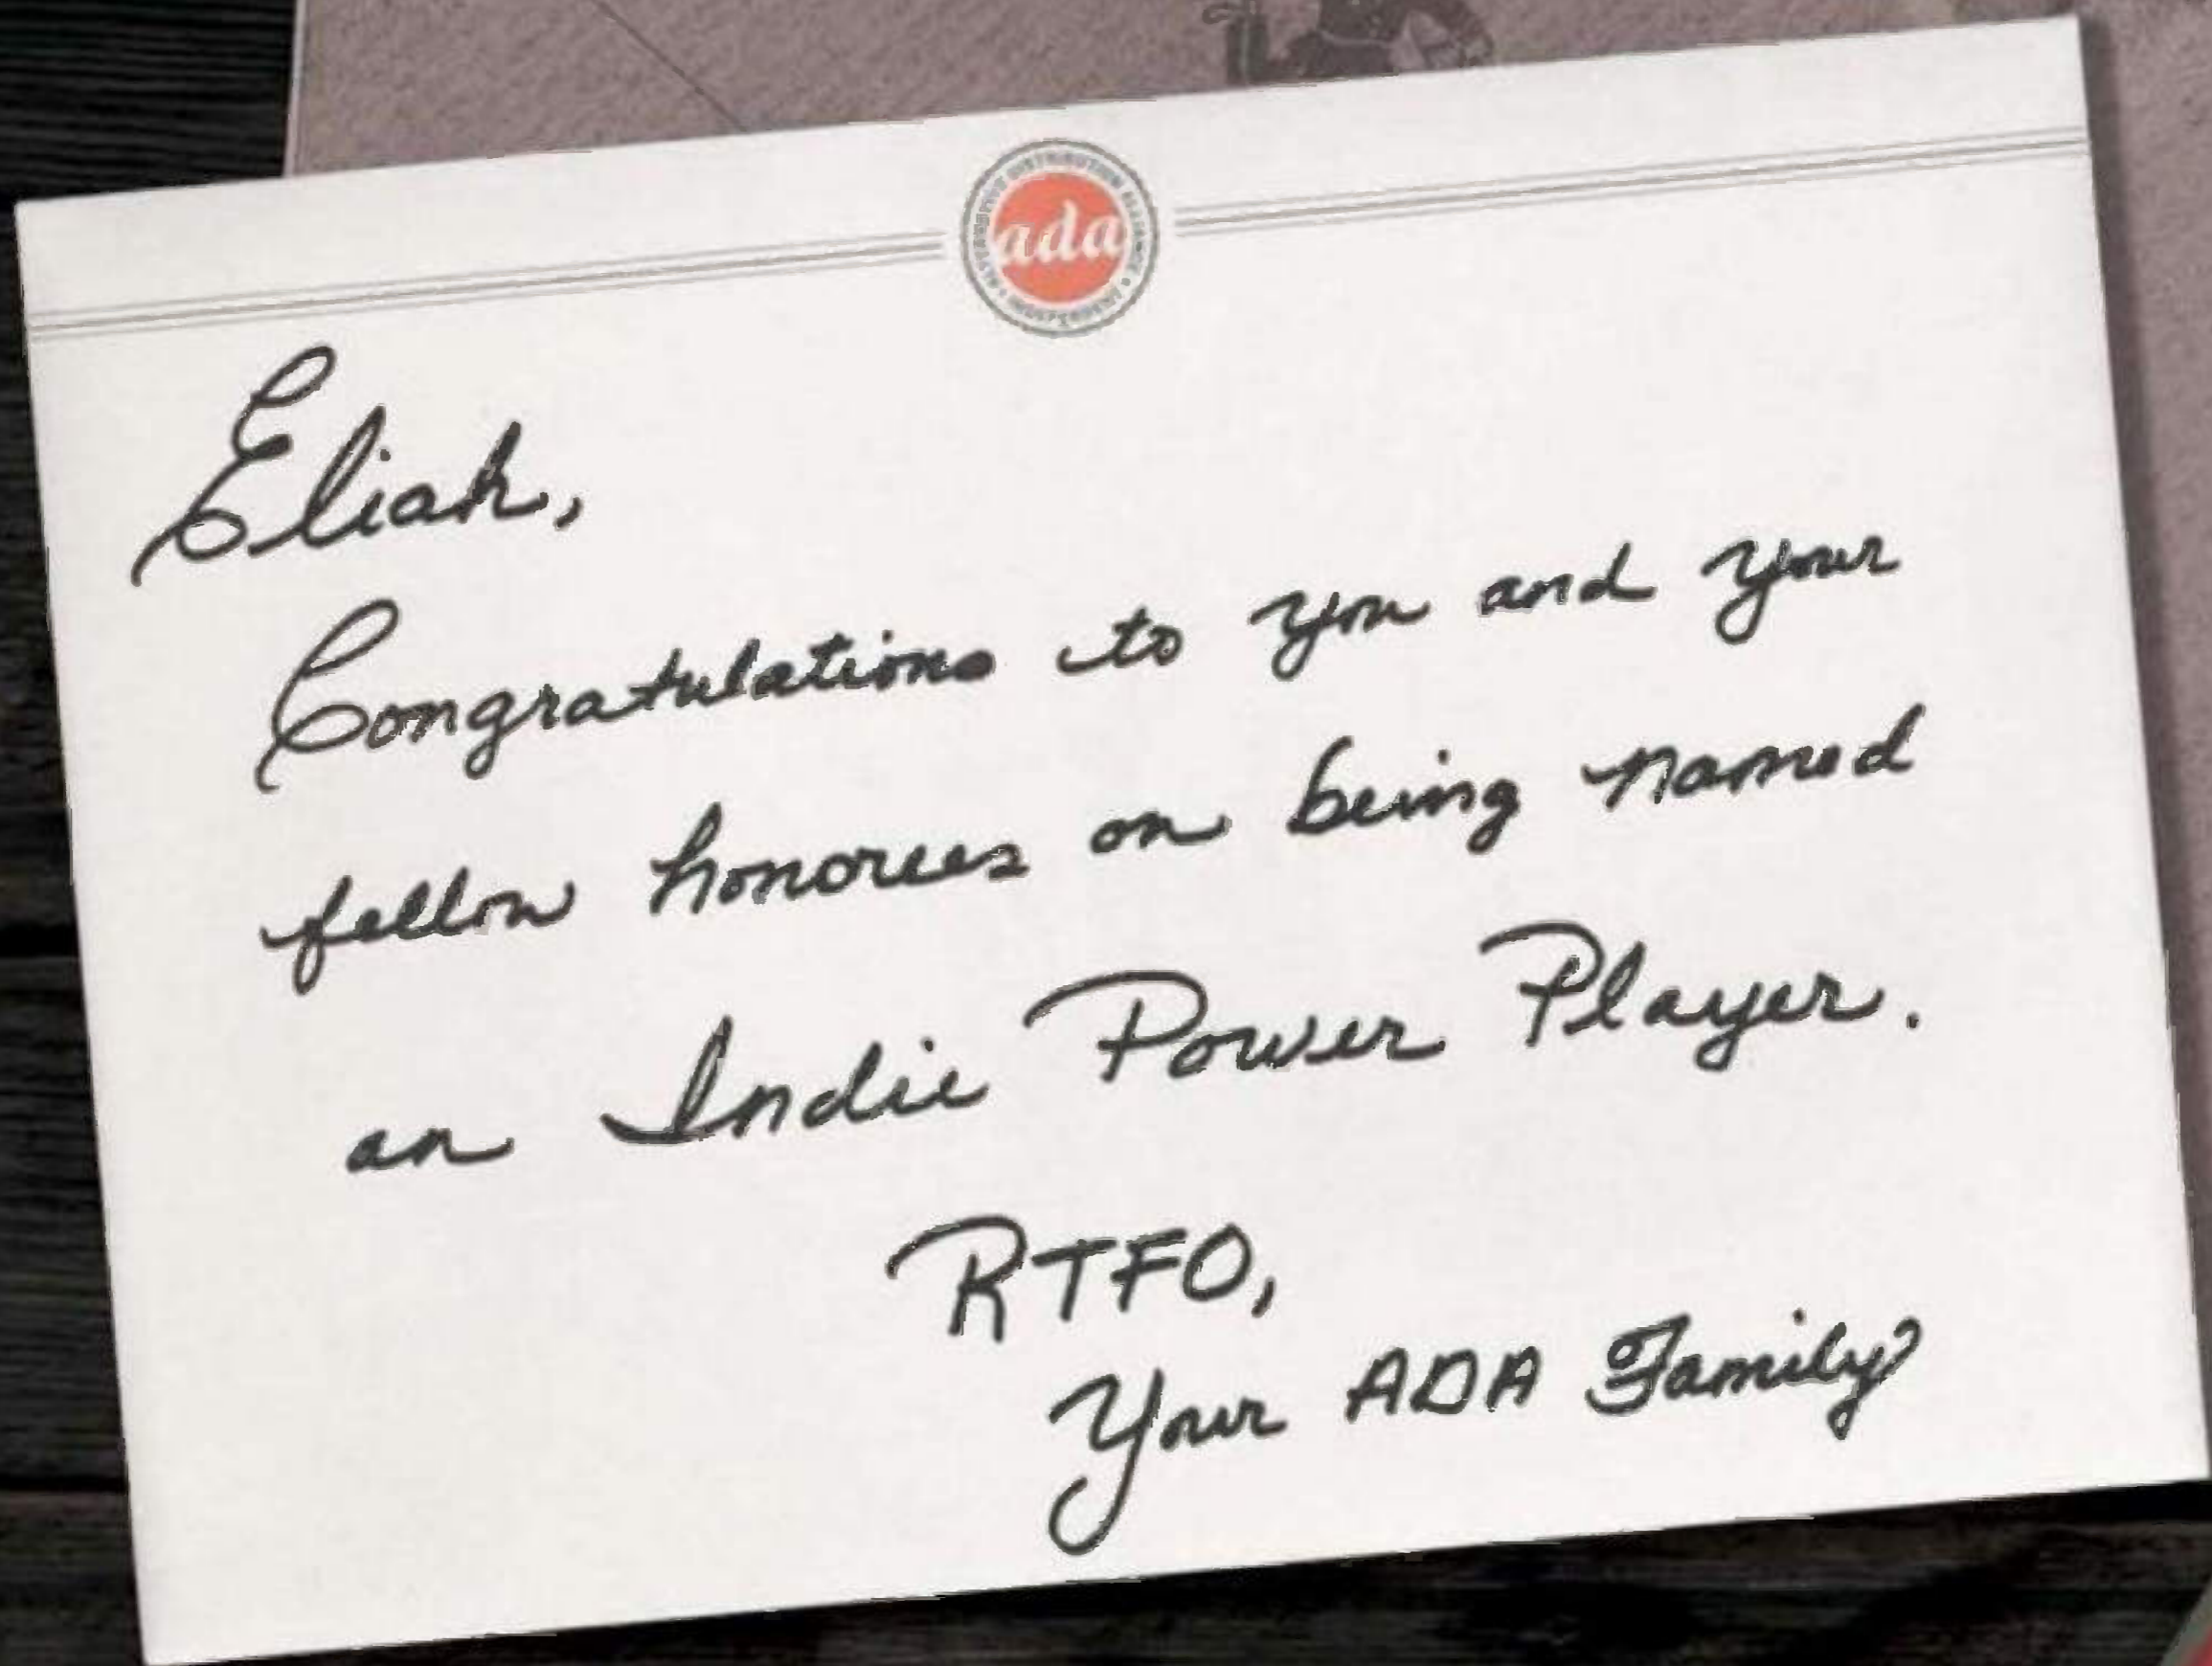 ada
Eliah,
Congratulations to you and your
fellow honorees on being named
an Indie Power Player.
RTFO,
Your ADA Family